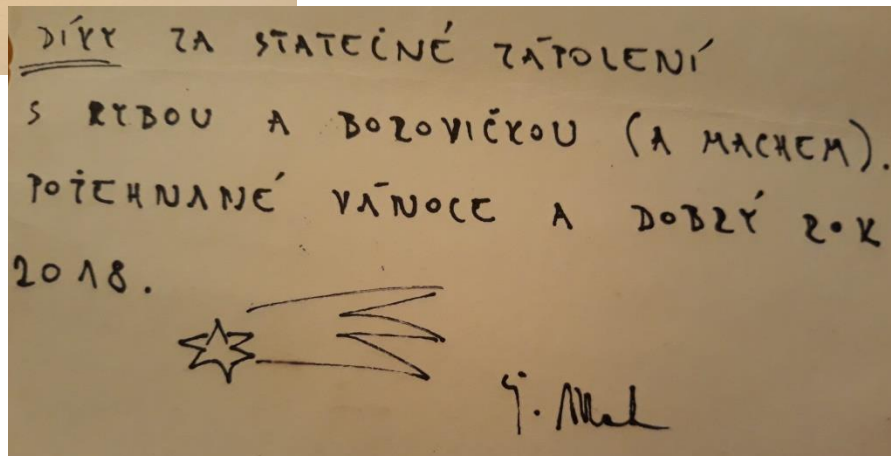 DÍKY ZA STATEČNÉ ZÁPOLENÍ
S RYBOU A BOROVIČKOU (A MACHEM).
POŽEHNANÉ VÁNOCE A DOBRÝ ROK
2018.